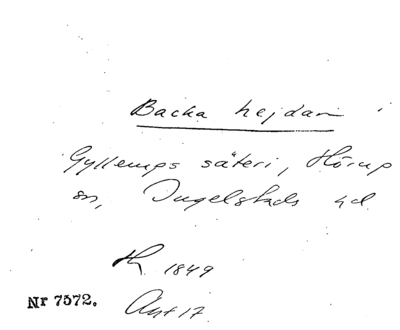 Backa hejdan i
Gyllerups säteri, Hörup
sn, Ingelstads hd
1849
Nr 7572. Akt 17